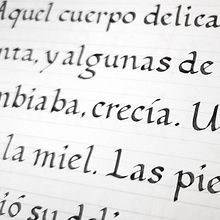 Aquel cuerpo delica
nta, y algunas de
nbiaba, crecía. U
la miel. Las pie
ió su deli